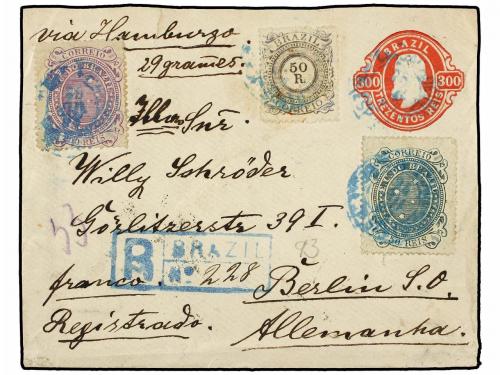 via Hamburgo.
29 grames.
CORREIO
REIS
50
R.
CORREIO
BRAZIL
300 300
TREZENTOS REIS
Illmo Snr.
Willy Schröder
Görlitzerstr 39 I.
CORREIO
REIS
53
93
R BRAZIL
Nº 228
franco.
Berlin S.O.
Registrado.
Allemanha.